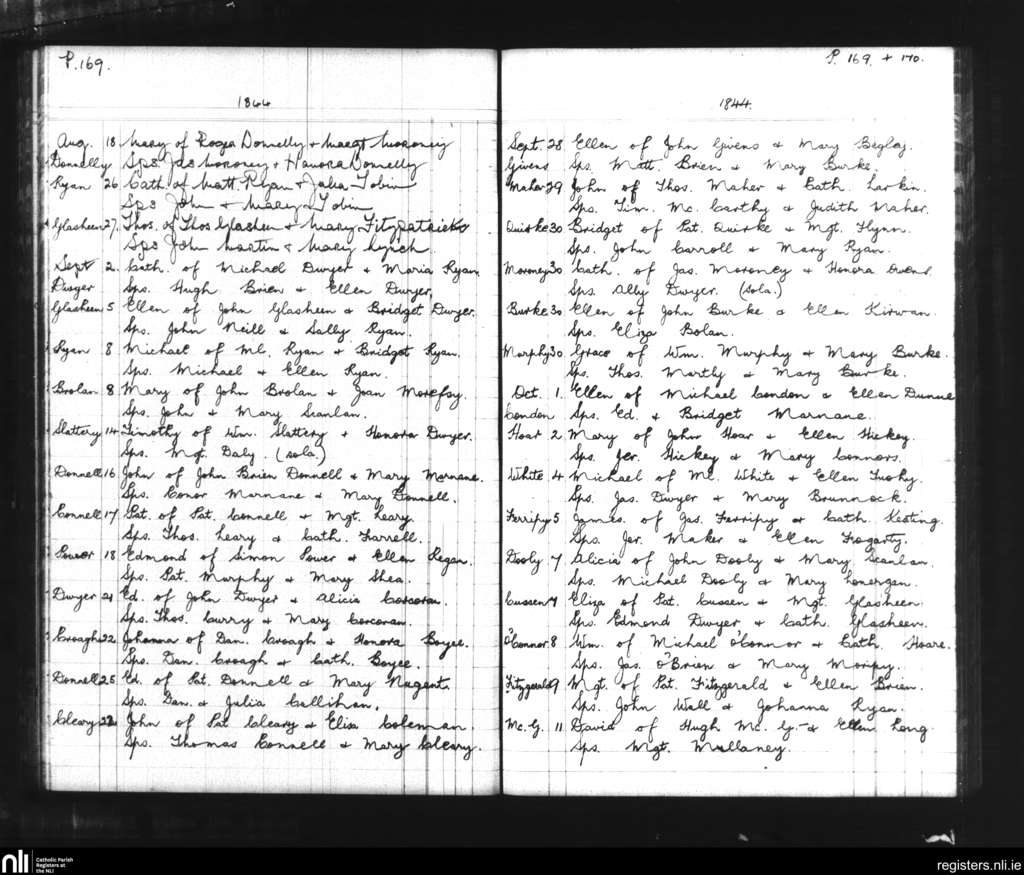 P. 169.
1844
Aug. 18 Mary of Roger Donnelly & Margt Moroney
Donnelly Sps. Jas Moroney & Hanora Donnelly
Ryan 26 Cath. of Matt. Ryan & Julia Tobin
Sps John & Mary Tobin
Glasheen 27. Thos. of Thos Glasheen & Mary Fitzpatrick
Sps John Martin & Mary Lynch.
Sept 2. Cath. of Michael Dwyer & Maria Ryan
Dwyer Sps. Hugh Brien & Ellen Dwyer.
Glasheen 5 Ellen of John Glasheen & Bridget Dwyer.
Sps. John Neill & Sally Ryan.
Ryan 8 Michael of Ml. Ryan & Bridget Ryan.
Sps. Michael & Ellen Ryan.
Brolan 8 Mary of John Brolan & Joan
Sps. John & Mary Scanlan.
Slattery 14 Timothy of Wm. Slattery & Honora Dwyer.
Sps. Mgt. Daly. (sola.)
Donnell 16 John of John Brien Donnell & Mary Marnane.
Sps. Conor Marnane & Mary Donnell.
Connell 17 Pat. of Pat. Connell & Mgt. Leary.
Sps. Thos. Leary & Cath. Farrell.
Power 18 Edmond of Simon Power & Ellen Regan.
Sps. Pat. Murphy & Mary Shea.
Dwyer 21 Ed. of John Dwyer & Alicia Corcoran.
Sps. Thos. Curry & Mary Corcoran.
Croagh 22 Johanna of Dan. Croagh & Honora Boyce.
Sps. Dan. Croagh & Cath. Boyce.
Donnell 25 Ed. of Pat. Donnell & Mary Nugent.
Sps. Dan. & Julia Callihan.
Cleary John of Pat Cleary & Eliza Coleman.
Sps. Thomas Connell & Mary Cleary.
P. 169. + 170.
1844.
Sept. 28 Ellen of John Givens & Mary Begley.
Givens Sps. Matt. Brien & Mary Burke.
Maher 29 John of Thos. Maher & Cath. Larkin.
Sps. Tim. Mc. Carthy & Judith Maher.
Quirke 30 Bridget of Pat. Quirke & Mgt. Flynn.
Sps. John Carroll & Mary Ryan.
Moroney 30 Cath. of Jas. Moroney & Honora Owens.
Sps. Ally Dwyer. (sola.)
Burke 30 Ellen of John Burke & Ellen Kirwan.
Sps. Eliza Bolan.
Murphy 30 Grace of Wm. Murphy & Mary Burke.
Sps. Thos. Murtly & Mary Burke.
Oct. 1. Ellen of Michael Condon & Ellen Dunne
Condon Sps. Ed. & Bridget Marnane.
Hoar 2 Mary of John Hoar & Ellen Hickey.
Sps. Jer. Hickey & Mary Connors.
White 4 Michael of Ml. White & Ellen Tuohy.
Sps. Jas. Dwyer & Mary Brunnock.
Ferripy 5 James. of Jas. Ferripy & Cath. Keating.
Sps. Jer. Maker & Ellen Fogarty.
Dooly 7 Alicia of John Dooly & Mary Scanlan.
Sps. Michael Dooly & Mary Lonergan.
Cussen 7 Eliza of Pat. Cussen & Mgt. Glasheen.
Sps. Edmond Dwyer & Cath. Glasheen.
O'Connor 8 Wm. of Michael O'Connor & Cath. Hoare.
Sps. Jas. O'Brien & Mary Moripy.
Fitzgerald 9 Mgt. of Pat. Fitzgerald & Ellen Brien.
Sps. John Wall & Johanna Ryan.
Mc. G. 11 David of Hugh Mc. G.- & Ellen Long.
Sps. Mgt. Mullaney.
nli
Catholic Parish
Registers at
the NLI
registers.nli.ie